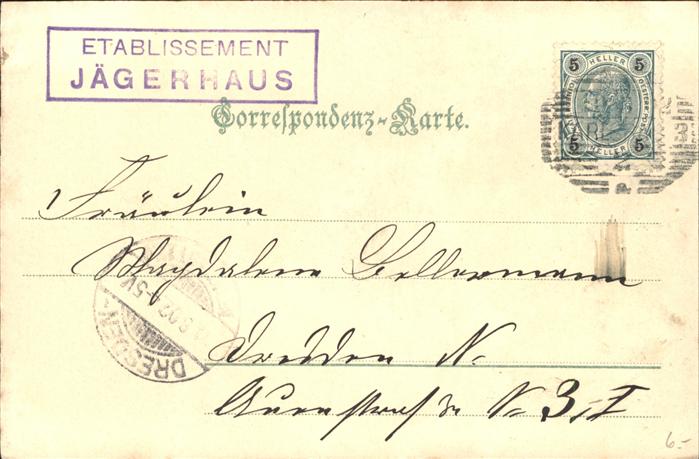 ETABLISSEMENT
JÄGERHAUS
5 HELLER 5
5 HELLER 5
Correspondenz-Karte.
Fräulein
Magdalene Bellermann
DRESDEN
Dresden N.
No 3, I
6.-